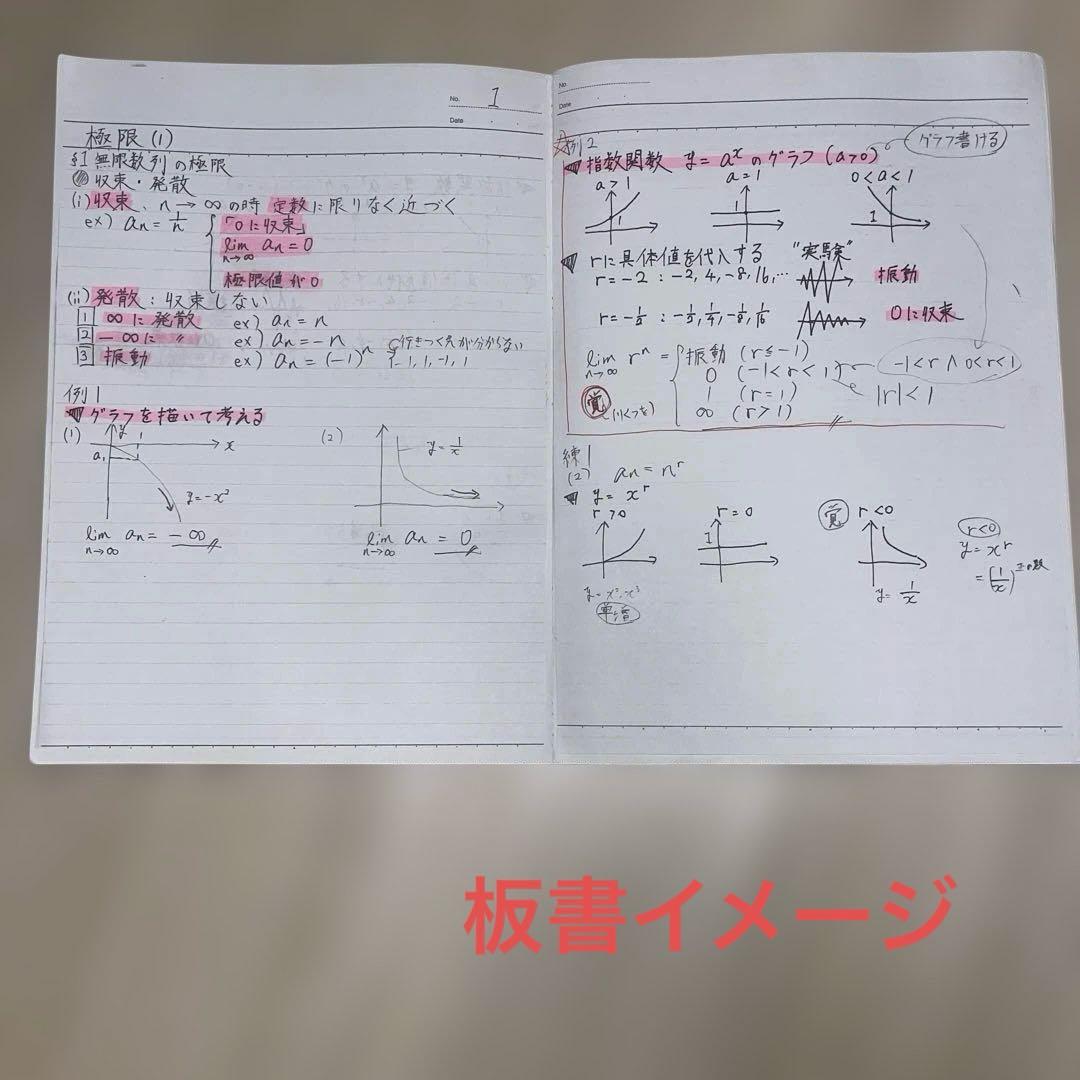 No. 1
Date
極限(1)
§1 無限数列の極限
収束・発散
(i) 収束、n→∞の時 定数に限りなく近づく
ex) an = 1/n
「0に収束」
lim an = 0
n→∞
極限値が0
(ii) 発散：収束しない
1 ∞に発散 ex) an = n
2 -∞に 〃 ex) an = -n
3 振動 ex) an = (-1)^n
行きつく先が分からない
-1, 1, -1, 1
例1
グラフを描いて考える
(1) y 1 x
a1
y=-x²
lim an = -∞
n→∞
(2)
y=1/x
lim an = 0
n→∞
No.
Date
例2
グラフ書ける
指数関数 y=a^x のグラフ(a>0)
a>1 a=1 0<a<1
1 1 1
rに具体値を代入する "実験"
r=-2 : -2, 4, -8, 16, … 振動
r=-1/2 : -1/2, 1/4, -1/8, 1/16 0に収束
lim r^n = 振動 (r≦-1)
n→∞
0 (-1<r<1)
1 (r=1)
∞ (r>1)
-1<r∧0<r<1
|r|<1
覚
練1
(2) an = n^r
y=x^r
r>0 r=0 覚 r<0
1
y=x²,x³
単増
y=1/x
r<0
y=x^r
=(1/x)
板書イメージ